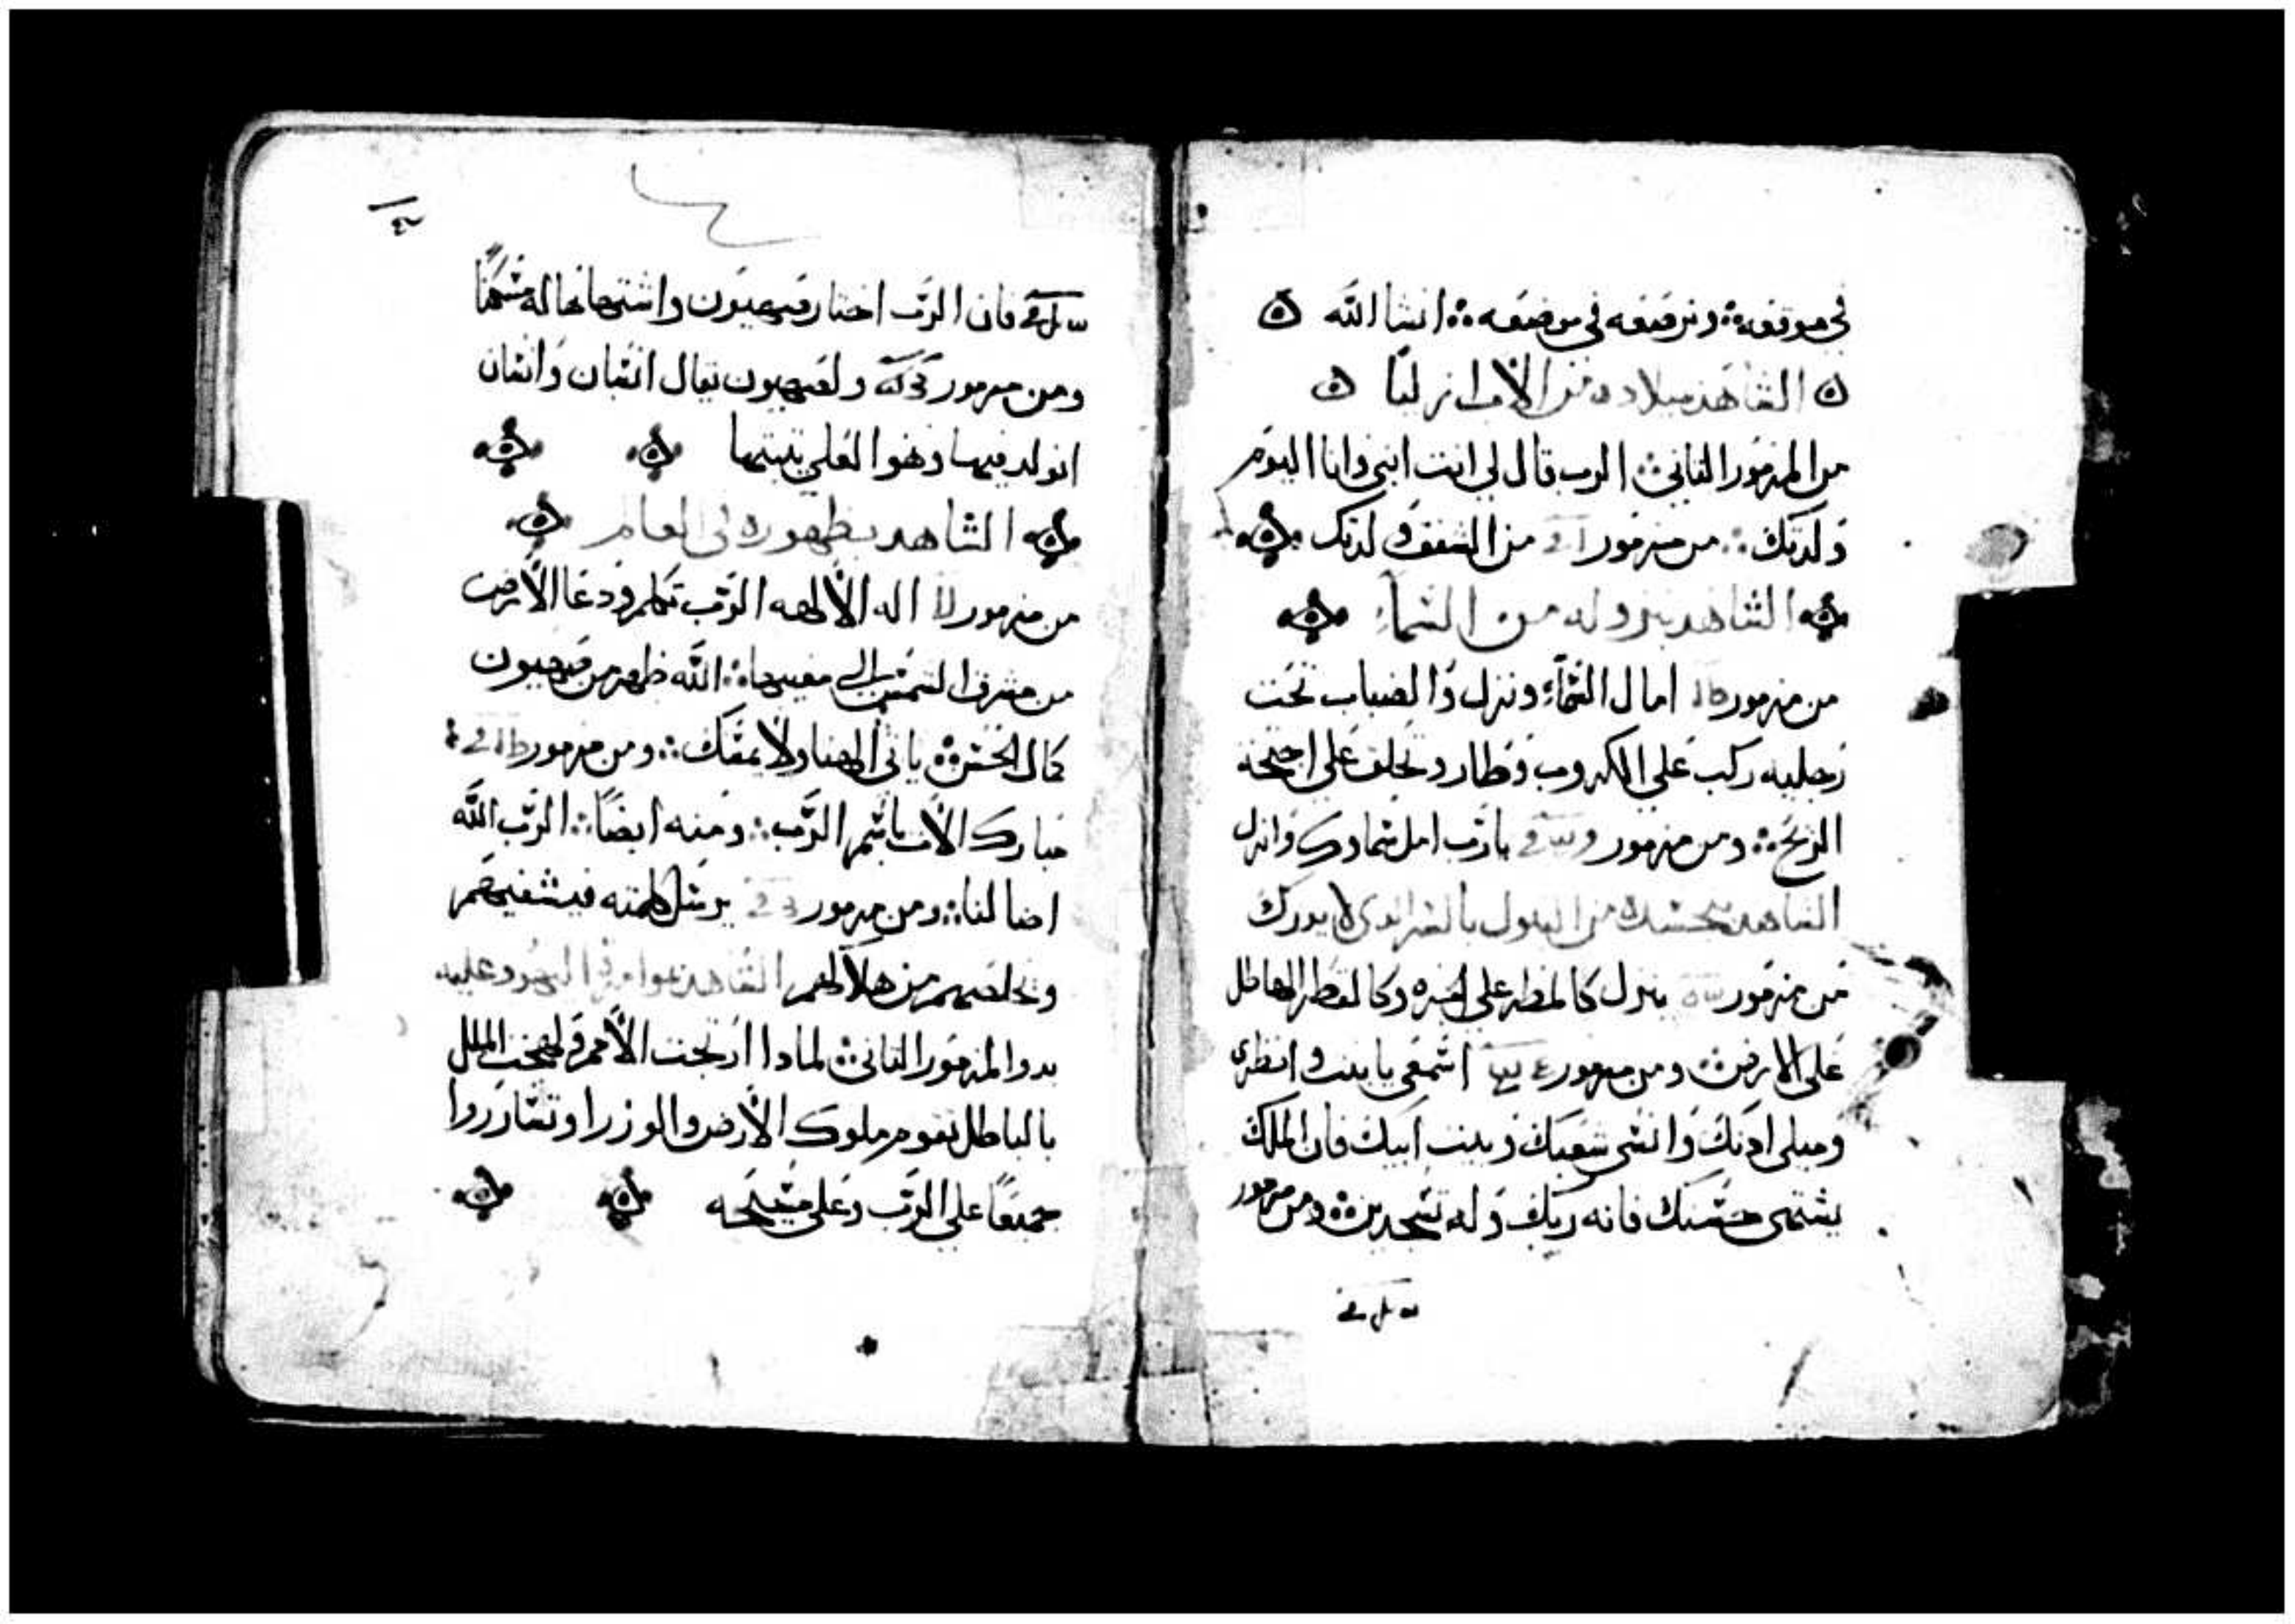 في موقفه ونرصعه في موضعه انشا الله
الشاهد ميلاده من الاب ازليا
من المزمور الثاني الرب قال لي انت ابني وانا اليوم
ولدتك من مزمور من البطن ولدتك
الشاهد بنزوله من السماء
من مزمور امال السماء ونزل والضباب تحت
رجليه ركب على الكروب وطار وتحلق على اجنحة
الريح ومن مزمور يا رب امل سماوك وانزل
الشاهد من البتول الذي لا يدرك
من مزمور ينزل كالمطر على الجزه وكالقطر الهاطل
على الارض ومن مزمور اسمعي يا بنت وانظري
وميلي ادنك وانسي شعبك وبيت ابيك فان الملك
يشتهي حسنك فانه ربك وله تسجدين ومن مزمور
فان الرب اختار صهيون واشتهاها له مسكنا
ومن مزمور ولصهيون تقال انسان وانسان
اتولد فيها وهوا العلي تبتها
الشاهد بظهوره في العالم
من مزمور اله الالهه الرب تكلم ودعا الارض
من مشرق الشمس الي مغيبها الله ظهر من صهيون
كمال الحسن ياتي الاهنا ولا يمسك ومن مزمور
مبارك الات باسم الرب ومنه ايضا الرب الله
اضا لنا ومن مزمور يرسل كلمته فيشفيهم
وتخلصهم من هلاكهم الشاهد اليهود عليه
بدوا المزمور الثاني لمادا ارتجت الامم ولهجت الملل
بالباطل تقوم ملوك الارض والوزرا وتشاوروا
جميعا على الرب وعلى مسيحه